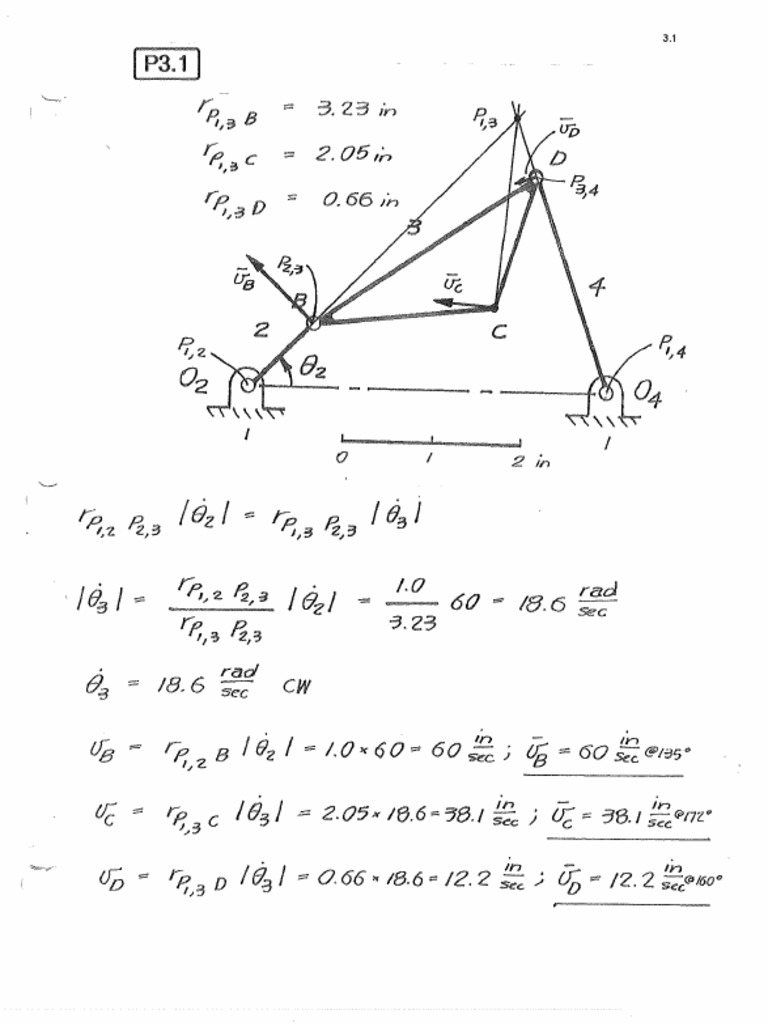 3.1
P3.1
r_{P_{1,3} B} = 3.23 in
r_{P_{1,3} C} = 2.05 in
r_{P_{1,3} D} = 0.66 in
P_{1,3}
v̄_D
D
P_{3,4}
3
v̄_B
P_{2,3}
B
v̄_C
4
2
C
P_{1,2}
P_{1,4}
O_2
θ_2
O_4
1
1
0 1 2 in
r_{P_{1,2} P_{2,3}} |θ̇_2| = r_{P_{1,3} P_{2,3}} |θ̇_3|
|θ̇_3| = r_{P_{1,2} P_{2,3}} / r_{P_{1,3} P_{2,3}} |θ̇_2| = 1.0 / 3.23 60 = 18.6 rad/sec
θ̇_3 = 18.6 rad/sec CW
v_B = r_{P_{1,2} B} |θ̇_2| = 1.0 × 60 = 60 in/sec ; v̄_B = 60 in/sec @135°
v_C = r_{P_{1,3} C} |θ̇_3| = 2.05 × 18.6 = 38.1 in/sec ; v̄_C = 38.1 in/sec @172°
v_D = r_{P_{1,3} D} |θ̇_3| = 0.66 × 18.6 = 12.2 in/sec ; v̄_D = 12.2 in/sec @160°